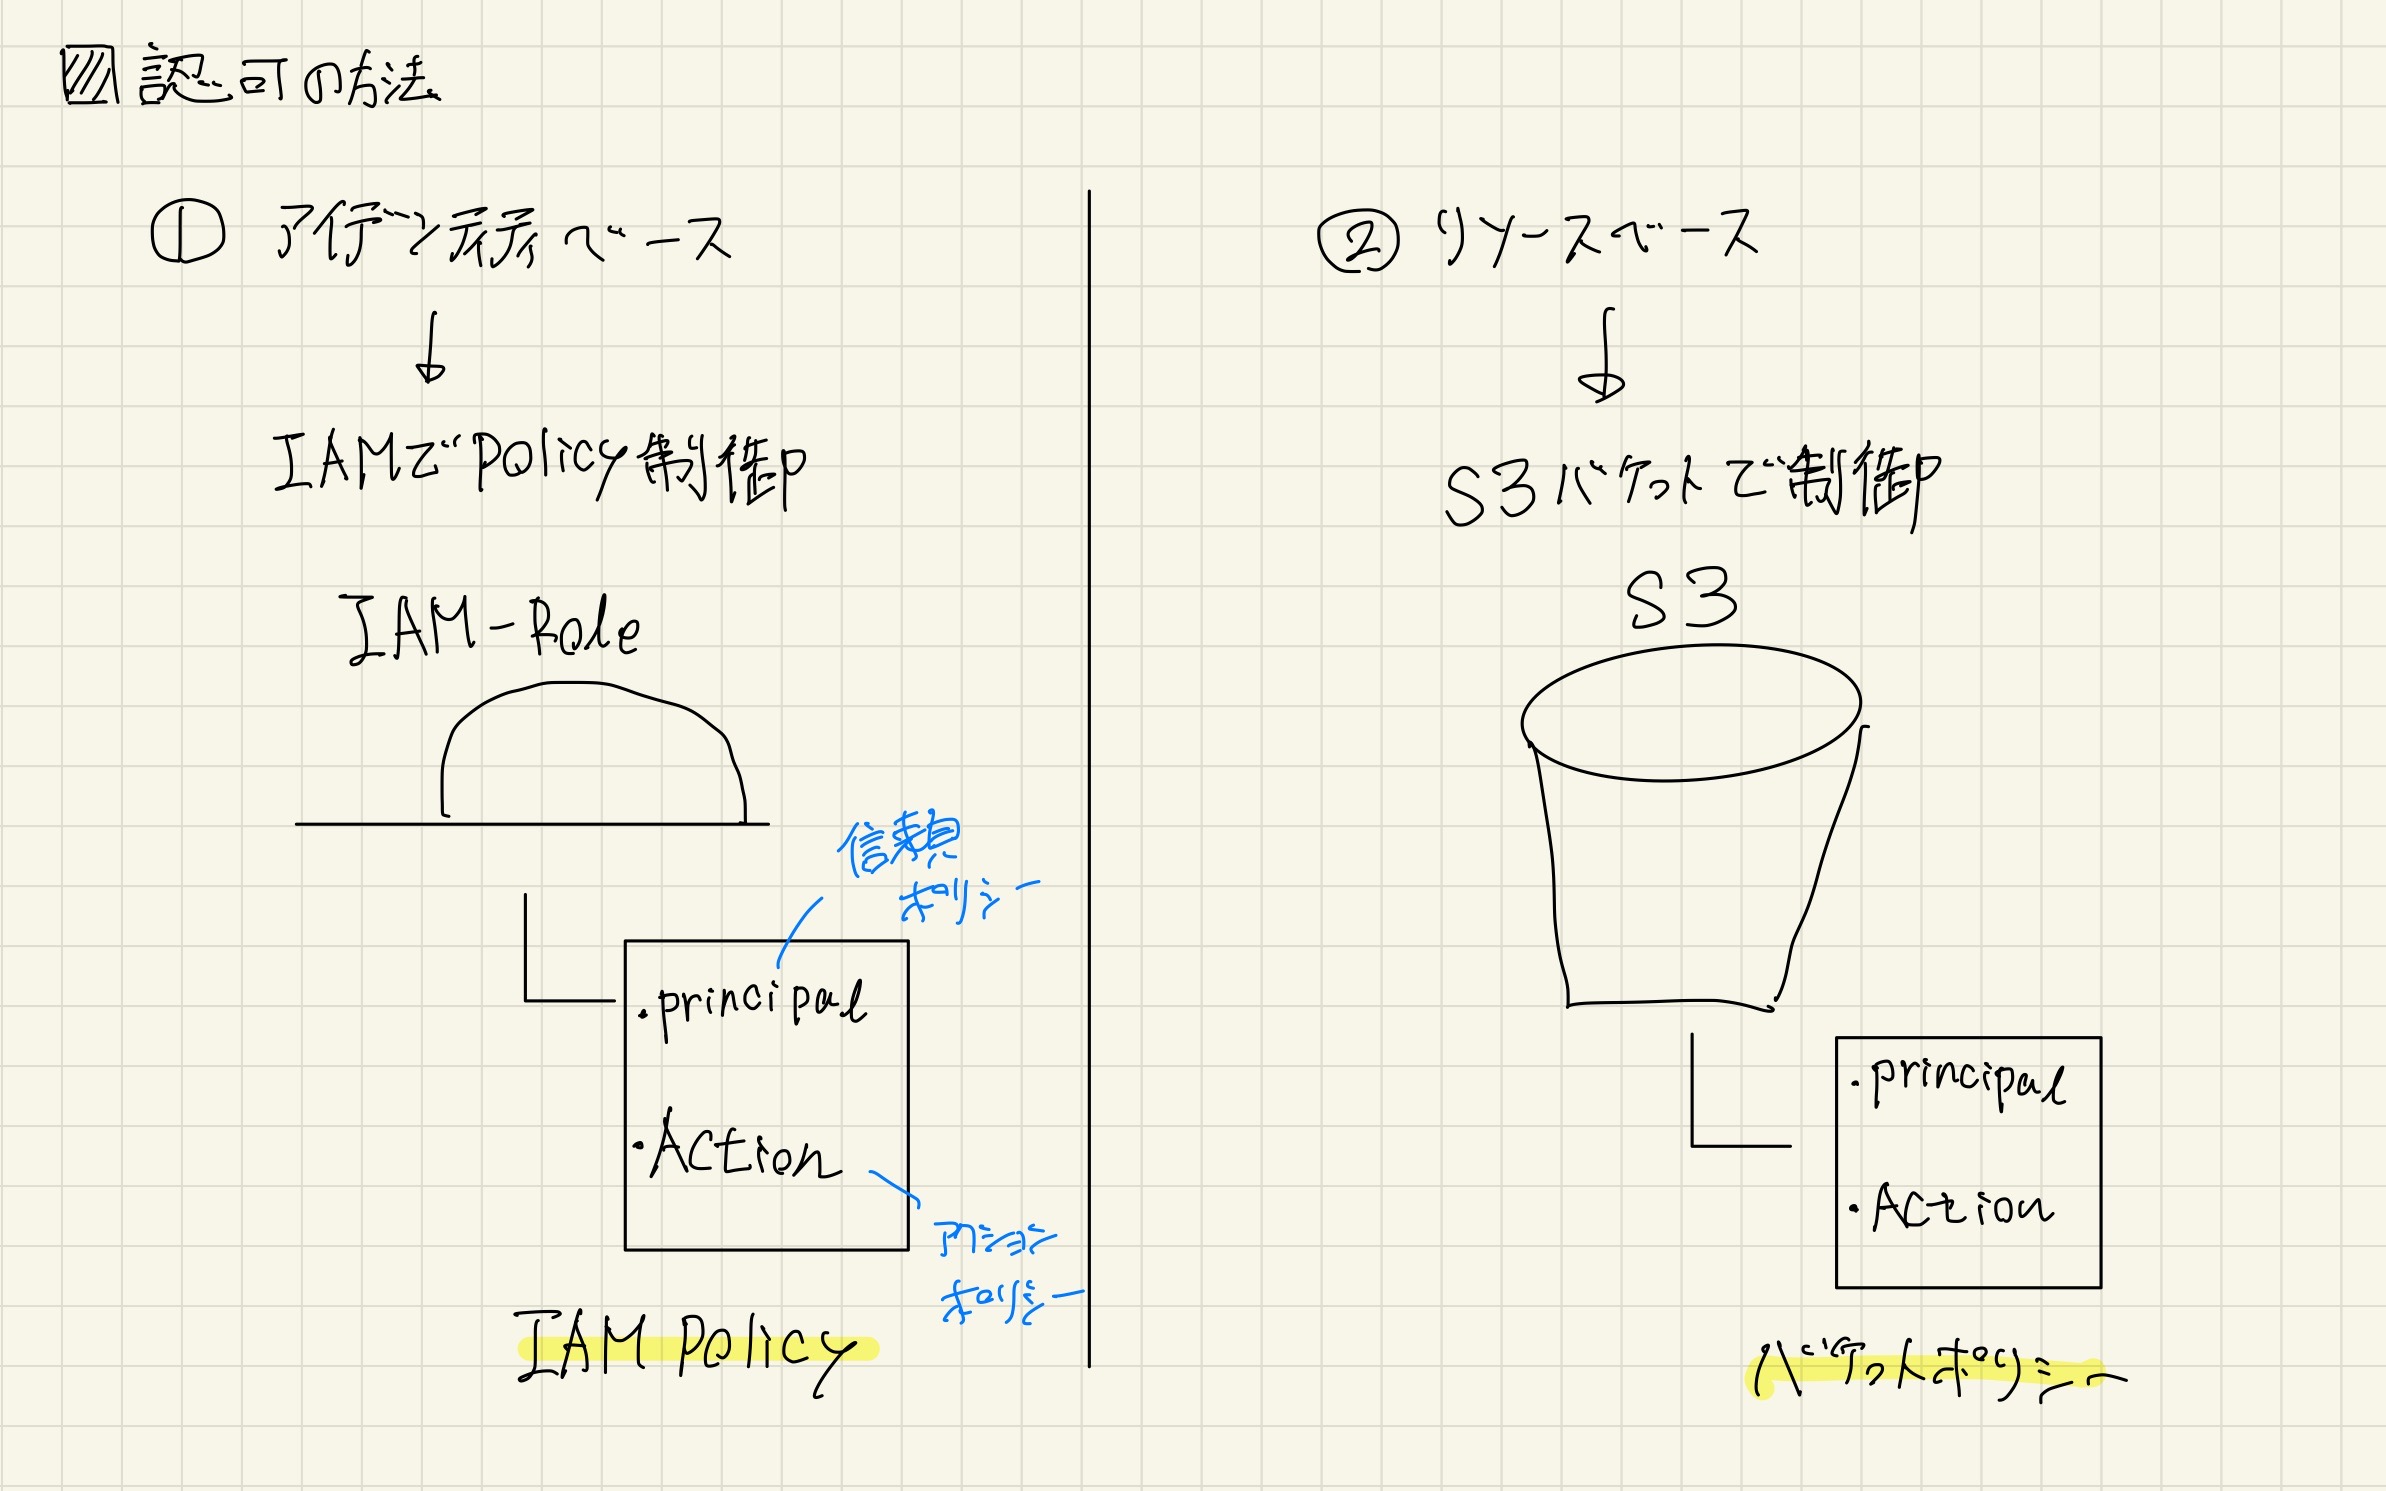 認可の方法
① アイデンティティベース
IAMでPolicy制御
IAM-Role
信頼
ポリシー
・principal
・Action
アクション
ポリシー
IAM Policy
② リソースベース
S3バケットで制御
S3
・principal
・Action
バケットポリシー